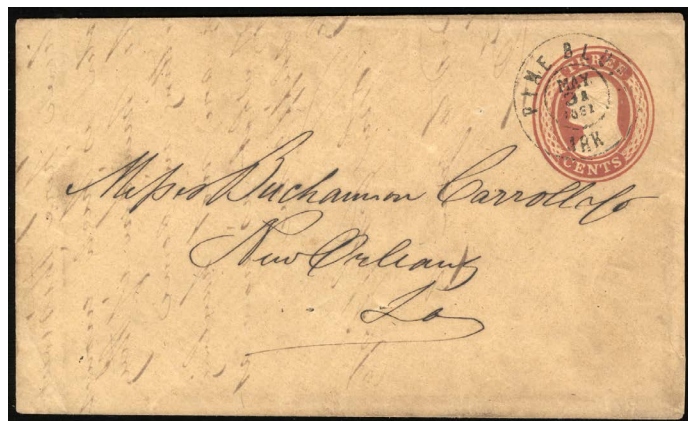 PINE BLU
THREE
MAY
31
1861
ARK
CENTS
Messrs Buchannon Carroll & Co
New Orleans
La